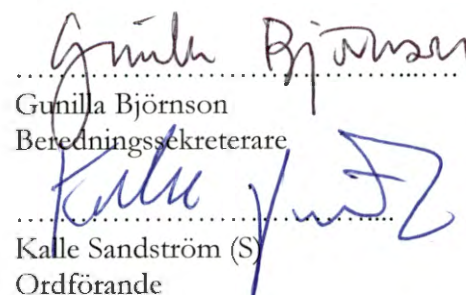 Gunilla Björnson
..........................................
Gunilla Björnson
Beredningssekreterare
Kalle
..........................................
Kalle Sandström (S)
Ordförande